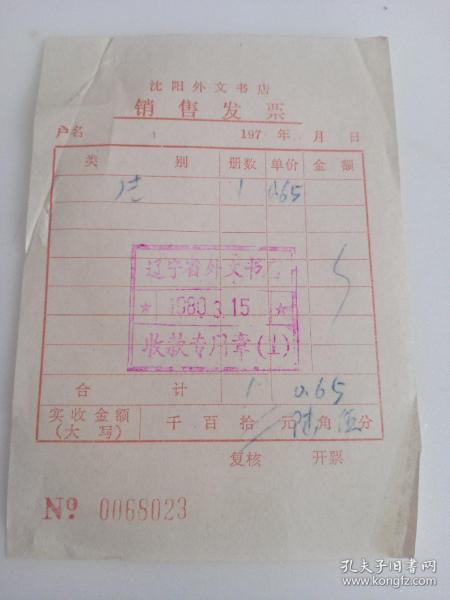 沈阳外文书店
销售发票
户名 197 年 月 日
类 别 册数 单价 金额
1 0.65
辽宁省外文书店
★ 1980.3.15 ★
收款专用章(1)
合 计 1 0.65
实收金额 (大写) 千 百 拾 元 陆 角 伍 分
复核 开票
№ 0068023
孔夫子旧书网
www.kongfz.com